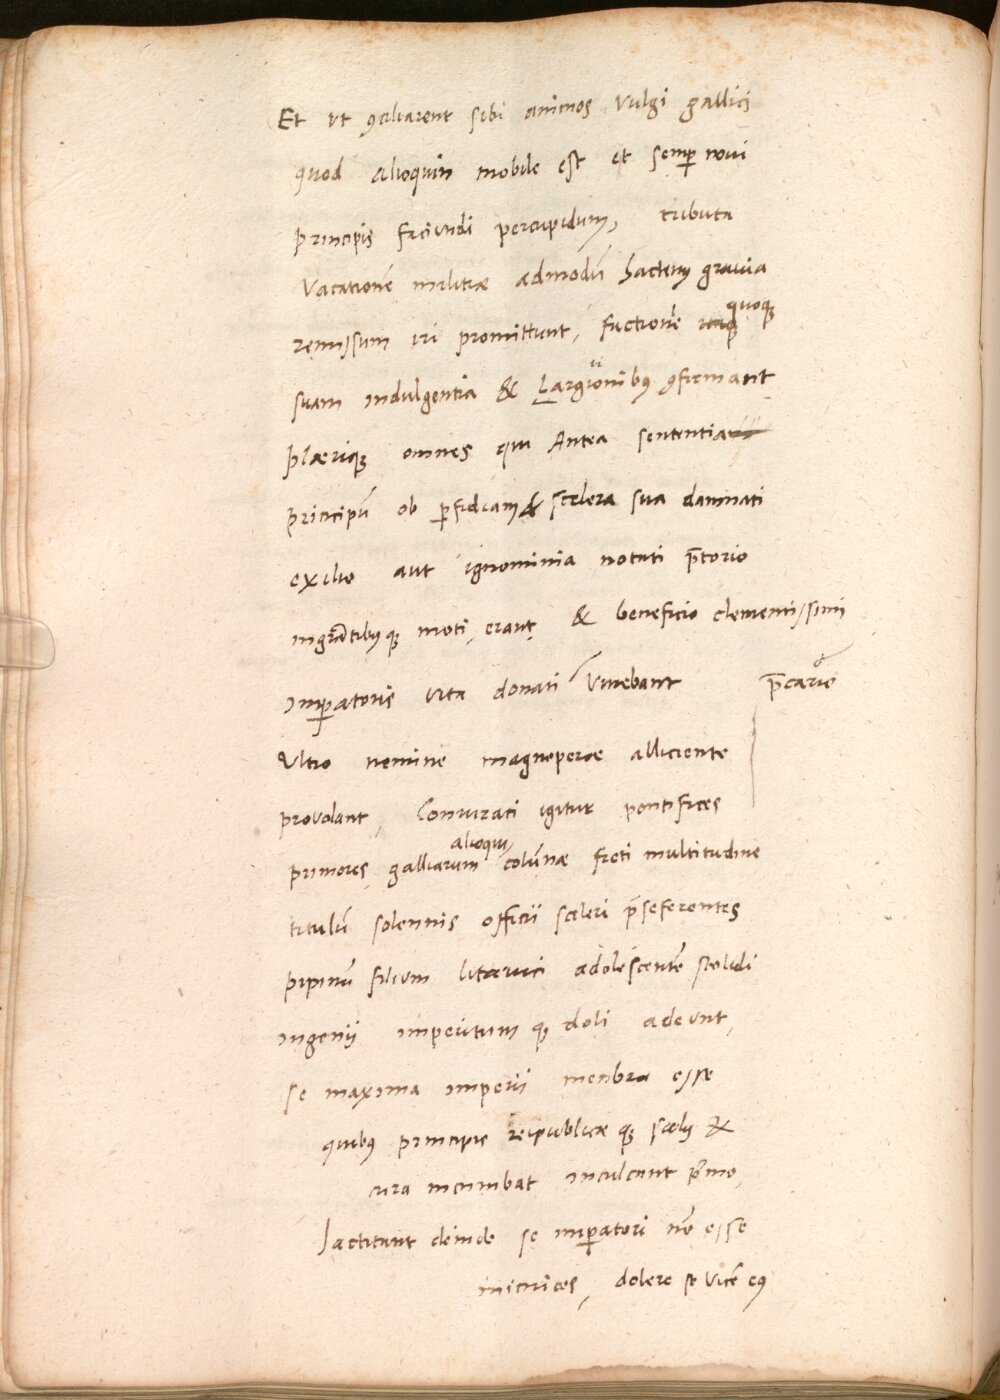 Et vt ꝯciliarent sibi animos vulgi gallici
quod alioquin mobile est et semꝑ noui
principis faciundi percupidum, tributa
Vacationē militiæ admodū hactenꝰ grauia
remissum iri promittunt, factionē quoqꝫ
suam indulgentia & Largitionibꝰ ꝯfirmant
plæriqꝫ omnes qui Antea sententia
principū ob ꝑfidiam & scelera sua damnati
exilio aut ignominia notati p̄torio
moti, erant & beneficio clementissimi
Imꝑatoris vita donati viuebant p̄cario
Vltro nomine magnopere alliciente
prouolant, Coniurati igitur pontifices
primores galliarum alioqui columnæ freti multitudine
titulū solennis officii sceleri p̄seferentes
pipinū filium adolescentē stolidi
ingenii imperitum qꝫ doli adeunt,
se maxima imperii menbra esse
quibꝰ principis reipublicæ qꝫ salꝰ &
cura incumbat inculcant pͥmo,
Iactitant deinde se imꝑatori nō esse
inimicos, dolere se vicē eiꝰ